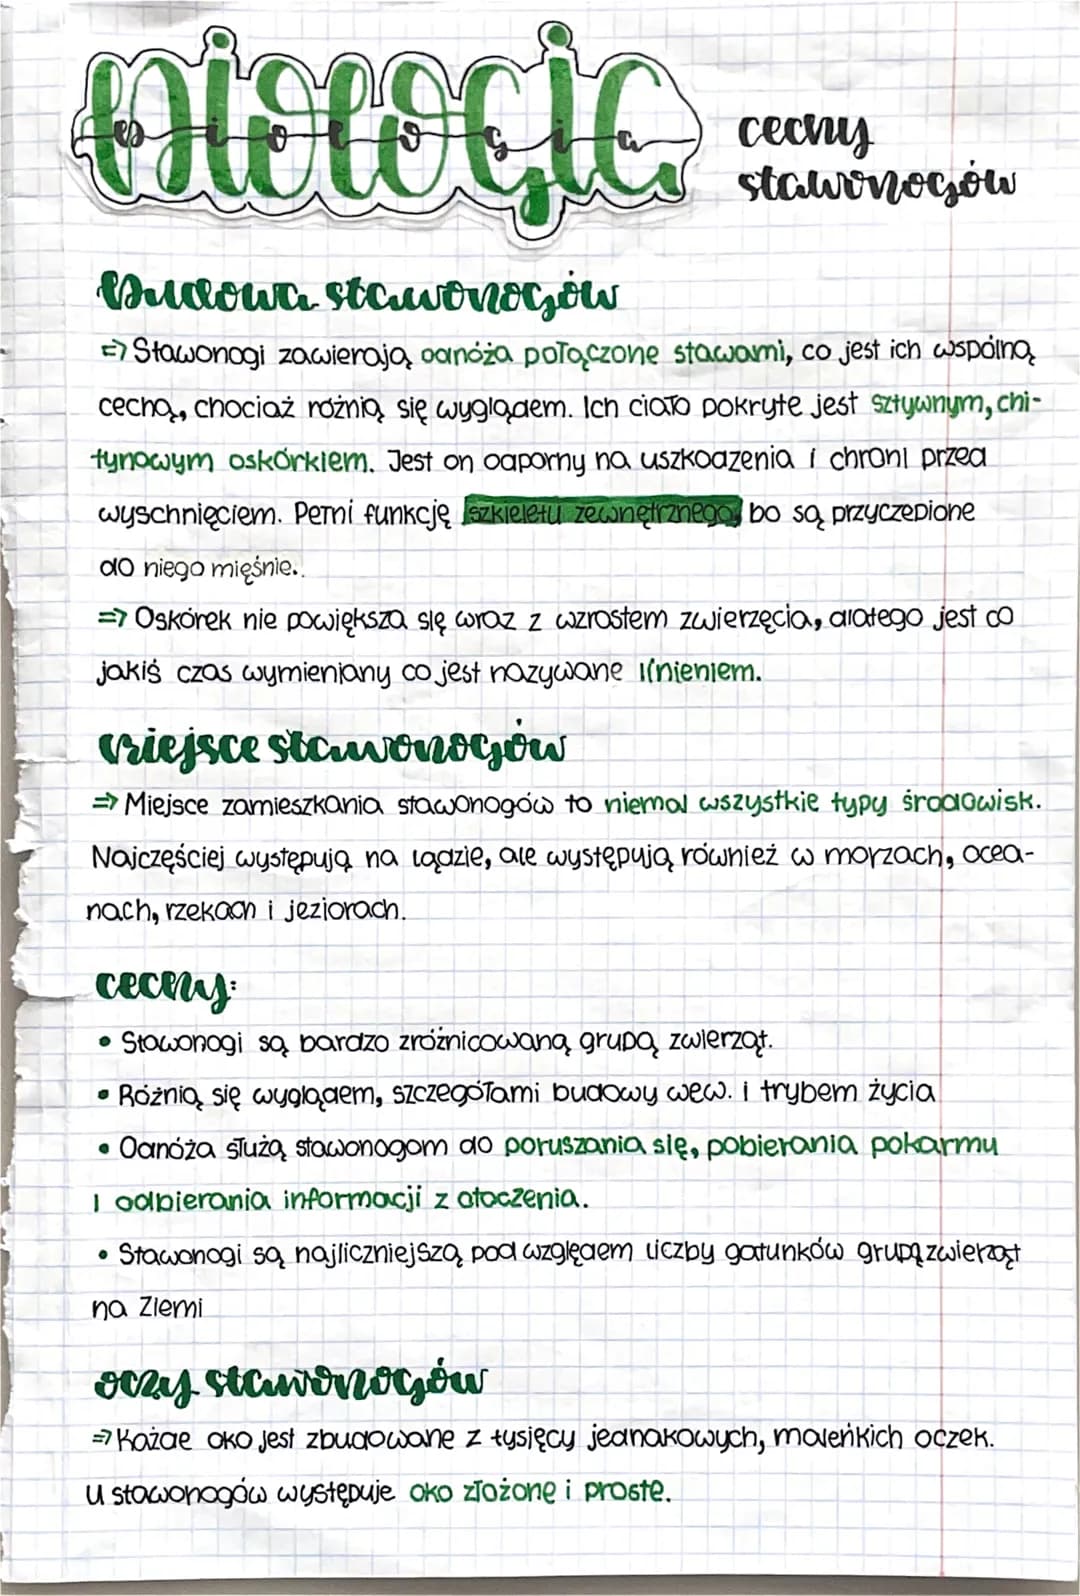 biologia
biologia
cechy
stawonogów
Budowa stawonogów
=> Stawonogi zawierają odnóża połączone stawami, co jest ich wspólną
cechą, chociaż różnią się wyglądem. Ich ciało pokryte jest sztywnym, chi-
tynowym oskórkiem. Jest on odporny na uszkodzenia i chroni przed
wyschnięciem. Pełni funkcję szkieletu zewnętrznego, bo są przyczepione
do niego mięśnie.
=> Oskórek nie powiększa się wraz z wzrostem zwierzęcia, dlatego jest co
jakiś czas wymieniany co jest nazywane linieniem.
Miejsce stawonogów
=> Miejsce zamieszkania stawonogów to niemal wszystkie typy środowisk.
Najczęściej występują na lądzie, ale występują również w morzach, ocea-
nach, rzekach i jeziorach.
cechy:
• Stawonogi są bardzo zróżnicowaną grupą zwierząt.
• Różnią się wyglądem, szczegółami budowy wew. i trybem życia
• Odnóża służą stawonogom do poruszania się, pobierania pokarmu
i odbierania informacji z otoczenia.
• Stawonogi są najliczniejszą pod względem liczby gatunków grupą zwierząt
na Ziemi
oczy stawonogów
=> Każde oko jest zbudowane z tysięcy jednakowych, maleńkich oczek.
U stawonogów występuje oko złożone i proste.